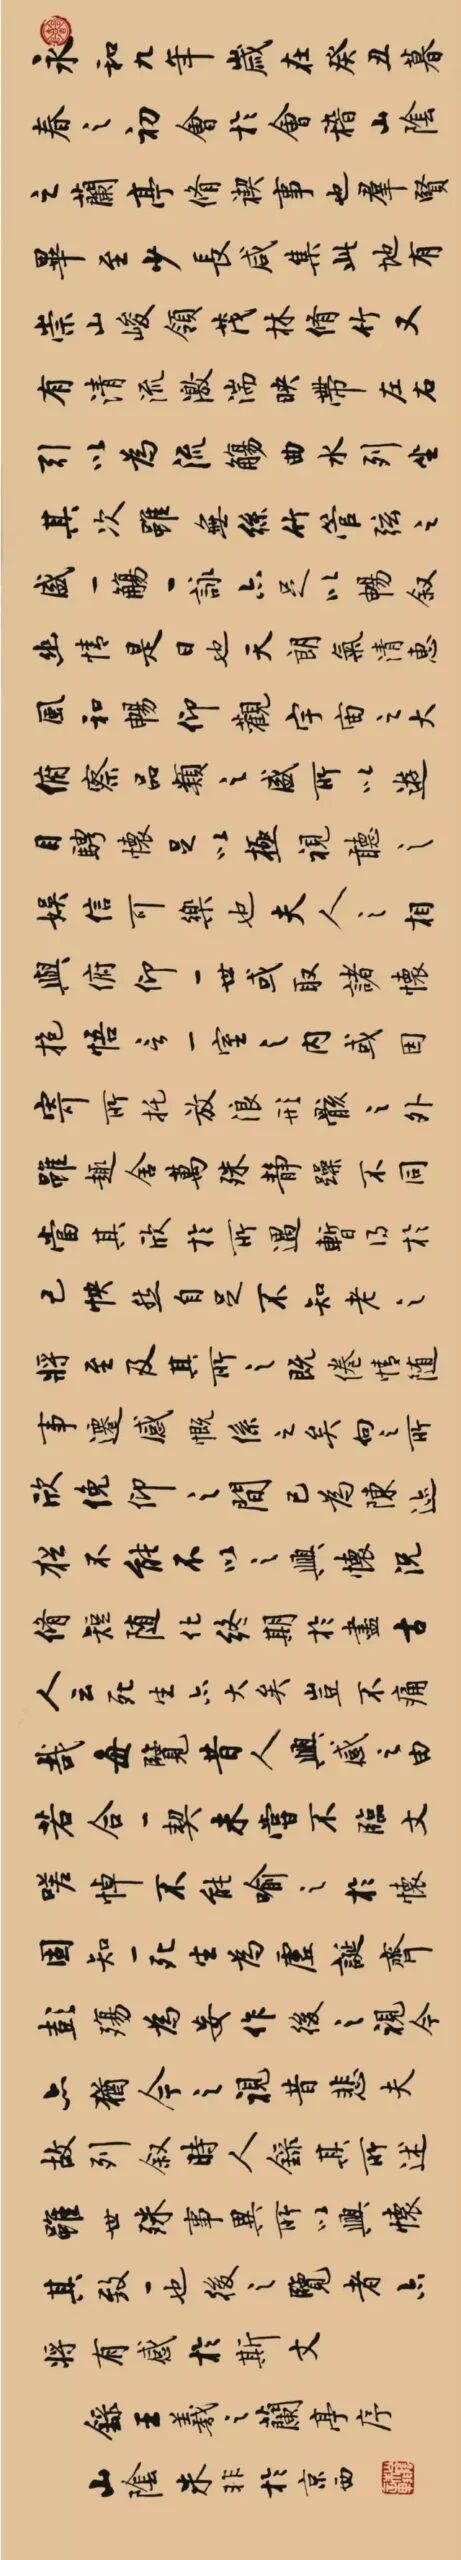 永和九年歲在癸丑暮
春之初會於會稽山陰
之蘭亭脩禊事也羣賢
畢至少長咸集此地有
崇山峻領茂林脩竹又
有清流激湍映帶左右
引以為流觴曲水列坐
其次雖無絲竹管弦之
盛一觴一詠亦足以暢叙
幽情是日也天朗氣清惠
風和暢仰觀宇宙之大
俯察品類之盛所以遊
目騁懷足以極視聽之
娛信可樂也夫人之相
與俯仰一世或取諸懷
抱悟言一室之內或因
寄所托放浪形骸之外
雖趣舍萬殊静躁不同
當其欣於所遇暫得於
己怏然自足不知老之
將至及其所之既倦情随
事遷感慨係之矣向之所
欣俛仰之間已為陳迹
猶不能不以之興懷況
脩短随化終期於盡古
人云死生亦大矣豈不痛
哉每覽昔人興感之由
若合一契未嘗不臨文
嗟悼不能喻之於懷
固知一死生為虛誕齊
彭殤為妄作後之視今
亦猶今之視昔悲夫
故列叙時人錄其所述
雖世殊事異所以興懷
其致一也後之覽者亦
將有感於斯文
錄王羲之蘭亭序
山陰朱非於京西